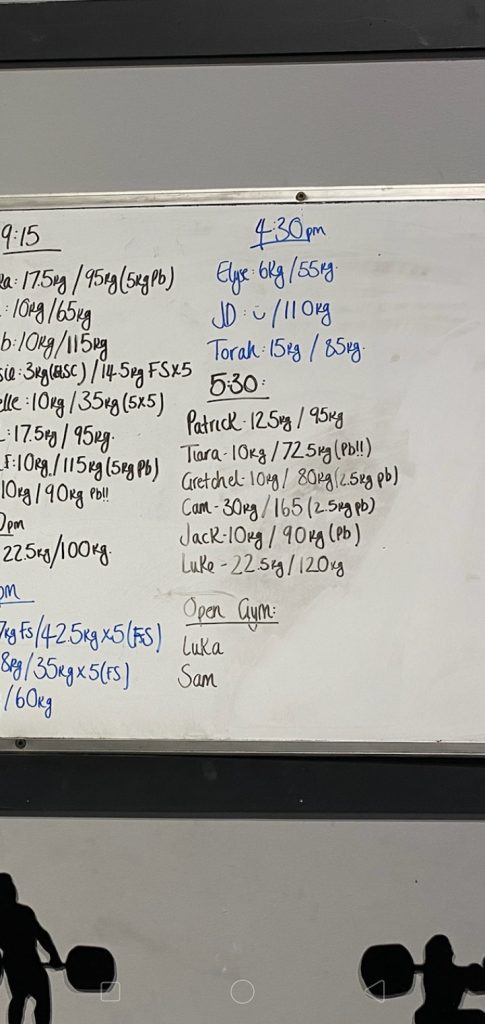 9:15
17.5kg / 95kg (5kg Pb)
10kg / 65kg
10kg / 115kg
3kg / 14.5kg FSx5
10kg / 35kg (5x5)
17.5kg / 95kg.
10kg / 115kg (5kg Pb)
10kg / 90kg Pb!!
pm
22.5kg / 100kg.
pm
kg FS / 42.5kg x5 (FS)
8kg / 35kg x5 (FS)
/ 60kg
4:30pm
Elyse: 6kg / 55kg.
JD: / 110kg
Torah: 15kg / 85kg.
5:30:
Patrick - 12.5kg / 95kg
Tiara - 10kg / 72.5kg (Pb!!)
Gretchel - 10kg / 80kg (2.5kg pb)
Cam - 30kg / 165 (2.5kg pb)
Jack - 10kg / 90kg (Pb)
Luke - 22.5kg / 120kg
Open Gym:
Luka
Sam